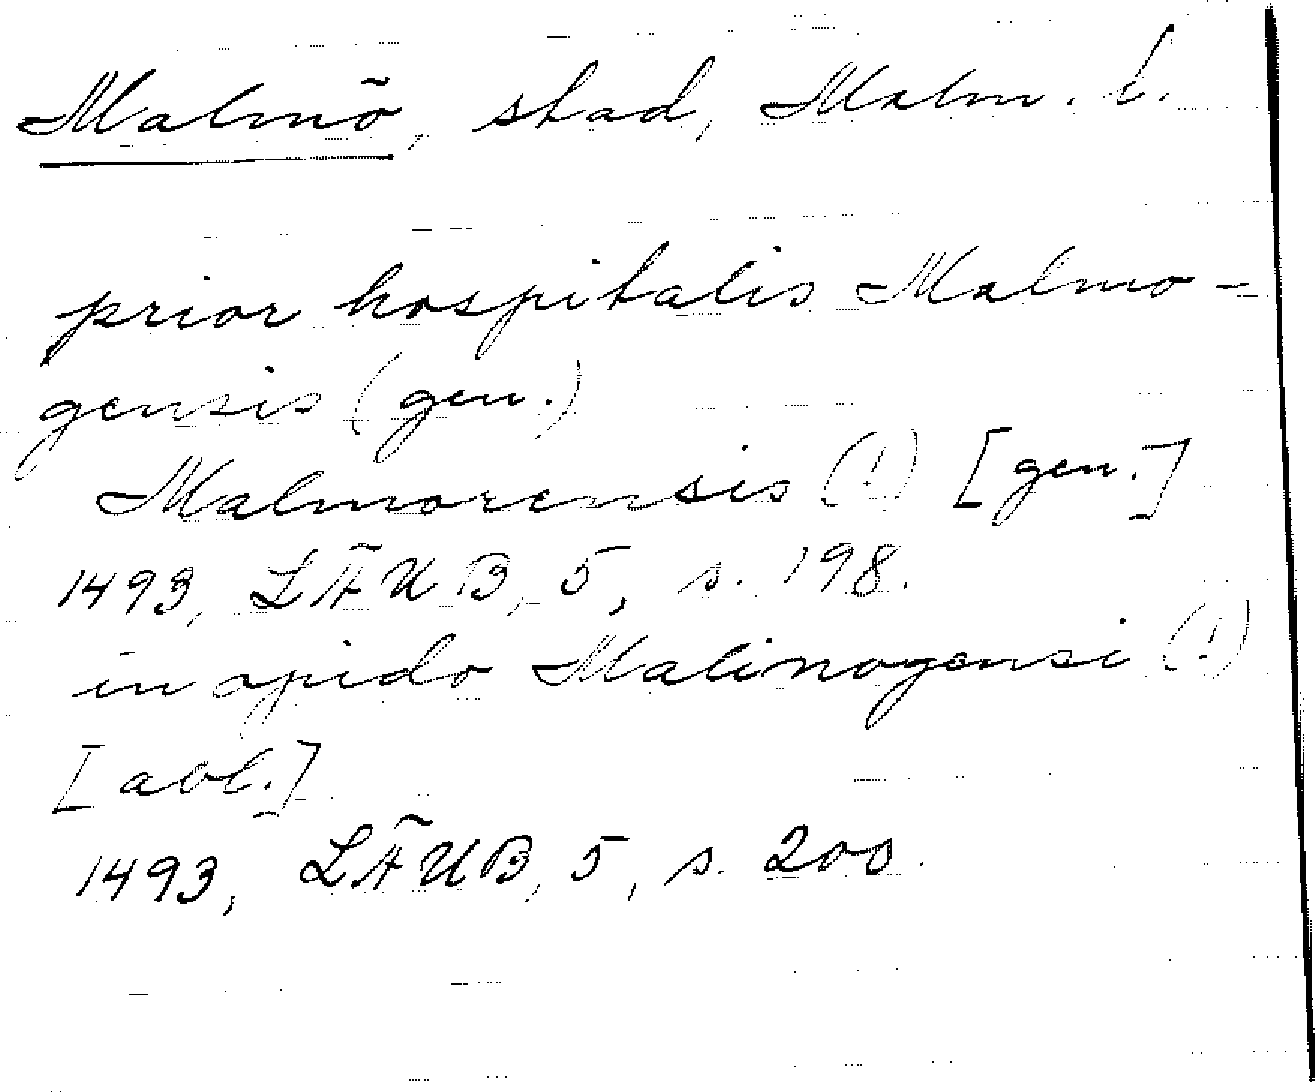 Malmö, stad, Malm. l.
prior hospitalis Malmo-
gensis (gen.)
Malmorensis (!) [gen.]
1493, LÄUB, 5, s. 198.
in opido Malinogensi (!)
[abl.]
1493, LÄUB, 5, s. 200.